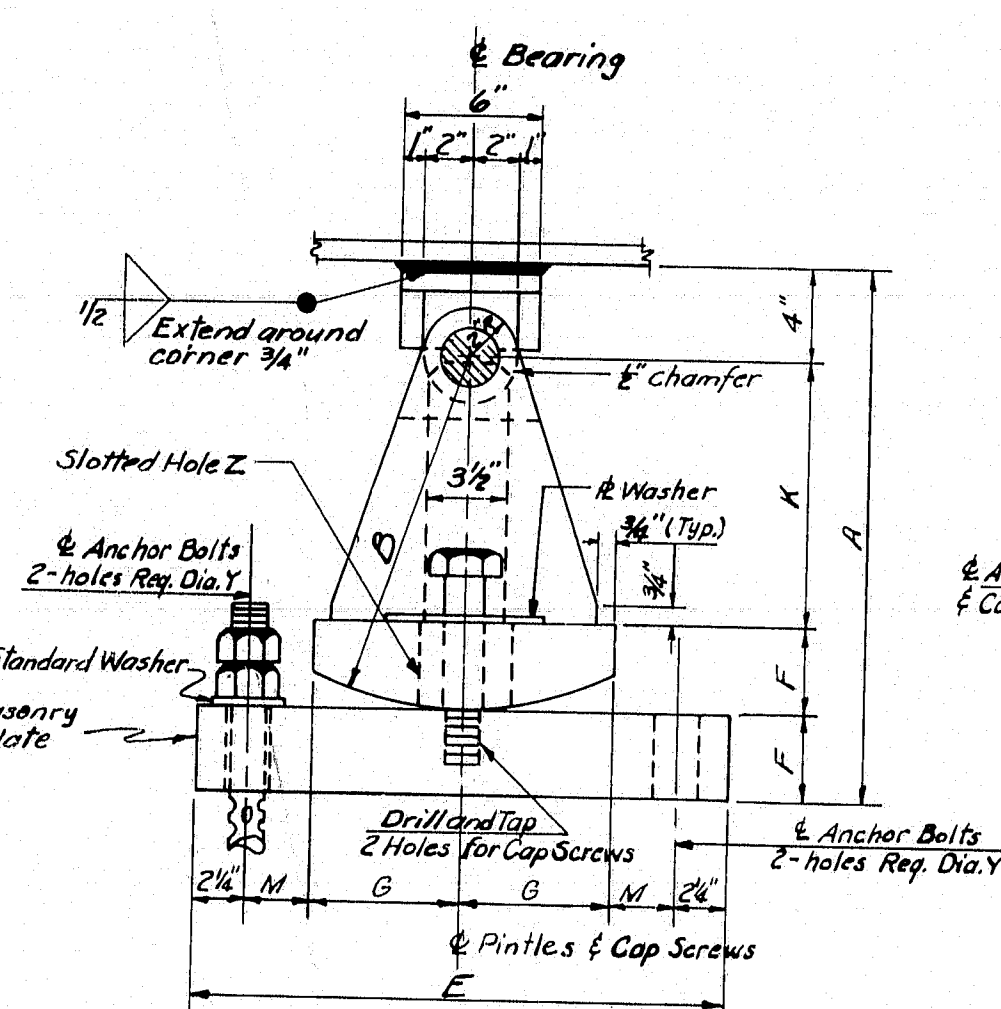 ℄ Bearing
6"
1" 2" 2" 1"
1/2
Extend around
corner 3/4"
4"
2"
1/2" Chamfer
Slotted Hole Z
3 1/2"
℞ Washer
3/4" (Typ.)
3/4"
B
K
A
℄ Anchor Bolts
2-holes Req. Dia. Y
Standard Washer
F
F
Drill and Tap
2 Holes for Cap Screws
℄ Anchor Bolts
2-holes Req. Dia. Y
2 1/4" M G G M 2 1/4"
℄ Pintles & Cap Screws
E